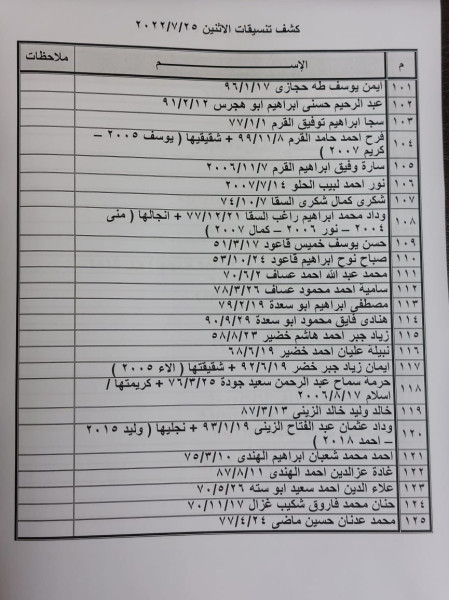 كشف تنسيقات الاثنين ٢٠٢٢/٧/٢٥
م الإســـــم ملاحظات
١٠١ ايمن يوسف طه حجازى ٩٦/١/١٧
١٠٢ عبد الرحيم حسنى ابراهيم ابو هجرس ٩١/٢/١٢
١٠٣ سجا ابراهيم توفيق القرم ٧٧/١/١
١٠٤ فرح احمد حامد القرم ٩٩/١١/٨ + شقيقيها ( يوسف ٢٠٠٥ –
كريم ٢٠٠٧ )
١٠٥ سارة وفيق ابراهيم القرم ٢٠٠٦/١١/٧
١٠٦ نور احمد لبيب الحلو ٢٠٠٧/٧/١٤
١٠٧ شكرى كمال شكرى السقا ٧٤/١٠/٧
١٠٨ وداد محمد ابراهيم راغب السقا ٧٧/١٢/٢١ + انجالها ( منى
٢٠٠٤ – نور ٢٠٠٦ – كمال ٢٠٠٧ )
١٠٩ حسن يوسف خميس قاعود ٥١/٣/١٧
١١٠ صباح نوح ابراهيم قاعود ٥٣/١٠/٢٤
١١١ محمد عبد الله احمد عساف ٧٠/٦/٢
١١٢ سامية احمد محمود عساف ٧٨/٣/٢٦
١١٣ مصطفى ابراهيم ابو سعدة ٧٩/٢/١٩
١١٤ هنادى فايق محمود ابو سعدة ٩٠/٩/٢٩
١١٥ زياد جبر احمد هاشم خضير ٥٨/٨/٢٣
١١٦ نبيلة عليان احمد خضير ٦٨/٦/١٩
١١٧ ايمان زياد جبر خضر ٩٢/٦/١٩ + شقيقتها ( الاء ٢٠٠٥ )
١١٨ حرمه سماح عبد الرحمن سعيد جودة ٧٦/٣/٢٥ + كريمتها /
اسلام ٢٠٠٦/٨/١٧
١١٩ خالد وليد خالد الزينى ٨٧/٣/١٣
١٢٠ وداد عثمان عبد الفتاح الزينى ٩٣/١/١٩ + نجليها ( وليد ٢٠١٥
– احمد ٢٠١٨ )
١٢١ احمد محمد شعبان ابراهيم الهندى ٧٥/٣/١٠
١٢٢ غادة عزالدين احمد الهندى ٨٧/٨/١١
١٢٣ علاء الدين احمد سعيد ابو سته ٧٠/٥/٢٦
١٢٤ حنان محمد فاروق شكيب غزال ٧٠/١١/١٧
١٢٥ محمد عدنان حسين ماضى ٧٧/٤/٢٤